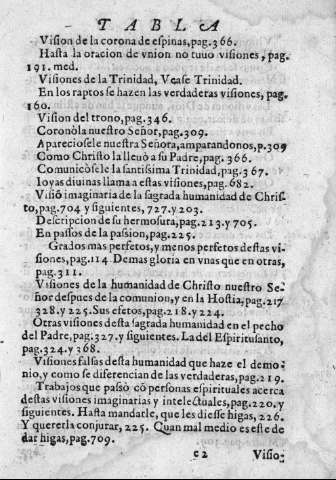 TABLA
Vision de la corona de espinas, pag. 366.
Hasta la oracion de vnion no tuuo visiones, pag.
191. med.
Visiones de la Trinidad, Vease Trinidad.
En los raptos se hazen las verdaderas visiones, pag.
160.
Vision del trono, pag. 346.
Coronòla nuestro Señor, pag. 309.
Apareciosele nuestra Señora, amparandonos, p. 309
Como Christo la lleuò a su Padre, pag. 366.
Comunicòsele la santissima Trinidad, pag. 367.
Ioyas diuinas llama a estas visiones, pag. 682.
Visiõ imaginaria de la sagrada humanidad de Chris-
to, pag. 704 y siguientes, 727. y 203.
Descripcion de su hermosura, pag. 213. y 705.
En passos de la passion, pag. 225.
Grados mas perfetos, y menos perfetos destas vi-
siones, pag. 114 De mas gloria en vnas que en otras,
pag. 311.
Visiones de la humanidad de Christo nuestro Se-
ñor despues de la comunion, y en la Hostia, pag. 217
328. y 225. Sus efetos, pag. 218. y 224.
Otras visiones desta sagrada humanidad en el pecho
del Padre, pag. 327. y siguientes. La del Espiritusanto,
pag. 324. y 368.
Visiones falsas desta humanidad que haze el demo-
nio, y como se diferencian de las verdaderas, pag. 219.
Trabajos que passò cõ personas espirituales acerca
destas visiones imaginarias y intelectuales, pag. 220. y
siguientes. Hasta mandarle, que les diesse higas, 226.
Y quererla conjurar, 225. Quan mal medio es este de
dar higas, pag. 709.
c2 Visio-